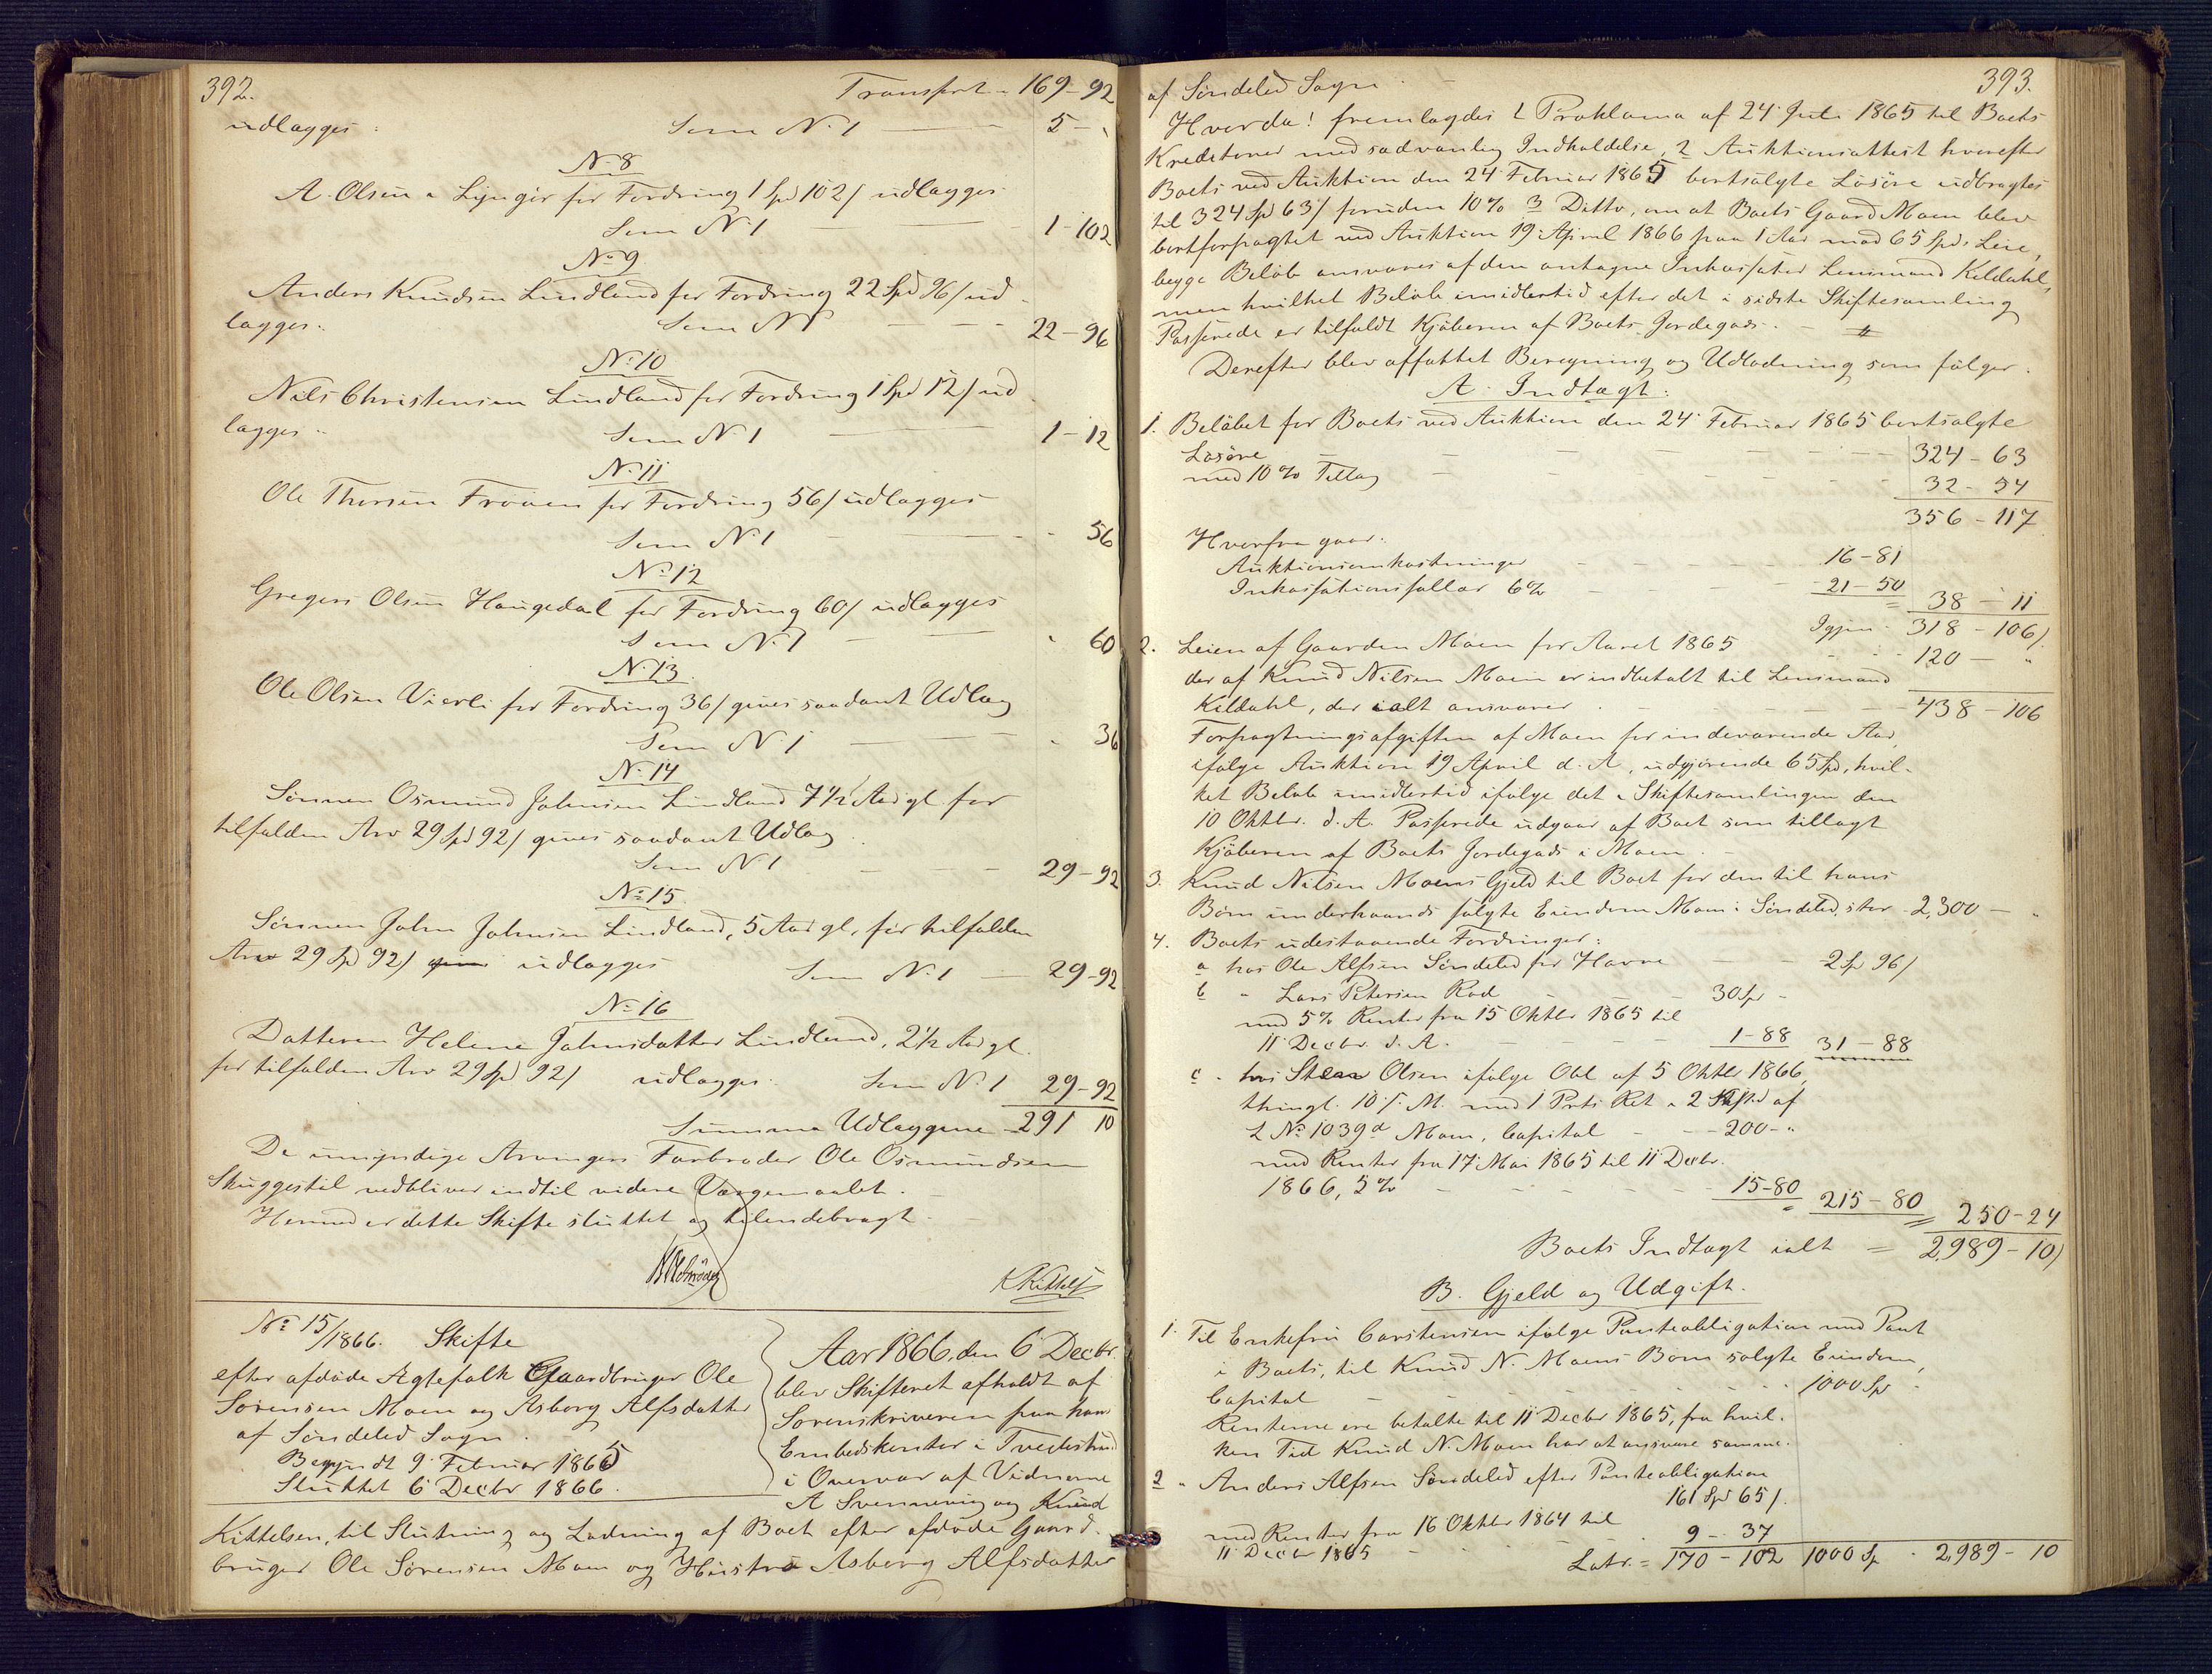 392.
Transport - 169-92
udlægges: Sum No 1 5-"
No 8
A. Olsen i Lyngör for Fordring 1 Spd 102/ udlægges
Sum No 1 1-102
No 9.
Anders Knudsen Lindland for Fordring 22 Spd 96/ ud-
lægges. Sum No 1 22-96
No 10
Nils Christensen Lindland for Fordring 1 Spd 12/ ud-
lægges Sum No 1 1-12
No 11
Ole Thorsen Fröuen for Fordring 56/ udlægges
Sum No 1 " 56
No 12
Gregers Olsen Haugedal for Fordring 60/ udlægges
Sum No 1 " 60
No 13.
Ole Olsen Vierli for Fordring 36/ gives saadant Udlæg
Sum No 1 " 36
No 14
Sönnen Osmund Johnsen Lindland 7 1/2 Aar gl. for
tilfalden Arv 29 Spd 92/ gives saadant Udlæg
Sum No 1 29-92
No 15.
Sönnen John Johnsen Lindland, 5 Aar gl, for tilfalden
Arv 29 Spd 92/ udlægges Sum No 1 29-92
No 16
Datteren Helene Johnsdatter Lindland, 2 1/2 Aar gl.
for tilfalden Arv 29 Spd 92/ udlægges. Sum No 1 29-92
Summa Udlæggene 291 10
De umyndige Arvingers Farbroder Ole Osmundsen
Skuggestil vedbliver indtil videre Værgemaalet.
Hermed er dette Skifte sluttet og tilendebragt.
K Kittelsen
No 15/1866. Skifte
efter afdöde Ægtefolk Gaardbruger Ole
Sörensen Moen og Asborg Alfsdatter
af Söndeled Sogn.
Begyndt 9 Februar 1865
Sluttet 6 Decbr 1866.
Aar 1866, den 6 Decbr.
blev Skifteret afholdt af
Sorenskriveren paa hans
Embedskontor i Tvedestrand
i Overvær af Vidnerne
A Svennevig og Knud
Kittelsen, til Slutning og Lodning af Boet efter afdöde Gaard-
bruger Ole Sörensen Moen og Hustru Asborg Alfsdatter
393.
af Söndeled Sogn.
Hvorda! fremlagdes 1 Proklama af 24 Juli 1865 til Boets
Kreditorer med sædvanlig Indholdelse, 2 Auktionsattest hvorefter
Boets ved Auktion den 24 Februar 1865 bortsolgte Lösöre udbragtes
til 324 Spd 63/ foruden 10% 3 Ditto, om at Boets Gaard Moen blev
bortforpagtet ved Auktion 19 April 1866 paa 1 Aar mod 65 Spds Leie,
begge Belöb ansvares af den antagne Inkassator Lensmand Kildahl,
men hvilket Belöb imidlertid efter det i sidste Skiftesamling
Passerede er tilfaldt Kjöberen af Boets Jordegods.
Derefter blev affattet Beregning og Udlodning som fölger.
A. Indtægt:
1. Belöbet for Boets ved Auktion den 24 Februar 1865 bortsolgte
Lösöre 324-63
med 10% Tillæg 32-54
356-117
Hvorfra gaar:
Auktionsomkostninger 16-81
Inkassationssallær 6% 21-50 = 38-11
Igjen 318-106/
2. Leien af Gaarden Moen for Aaret 1865 120-"
der af Knud Nilsen Moen er indbetalt til Lensmand
Kildahl, der ialt ansvarer 438-106
Forpagtningsafgiften af Moen for indeværende Aar,
ifölge Auktion 19 April d. A, udgjörende 65 Spd, hvil-
ket Belöb imidlertid ifölge det i Skiftesamlingen den
10 Oktbr. d. A. Passerede udgaar af Boet som tillagt
Kjöberen af Boets Jordegods i Moen.
3. Knud Nilsen Moens Gjeld til Boet for den til hans
Börn underhaands solgte Eiendom Moen i Söndeled, stor 2,300-"
4. Boets udestaaende Fordringer:
a hos Ole Alfsen Söndeled for Havre 2 Sp 96/
b " Lars Petersen Röd 30 Sp -
med 5% Renter fra 15 Oktbr 1865 til
11 Decbr. d. A. 1-88 31-88
c. hos Olsen ifölge Obl af 5 Oktbr 1866,
thingl. 10 f. M. med 1 Prts Ret i 2 af
L No 1039 d Moen, Capital 200-"
med Renter fra 17 Mai 1865 til 11 Decbr.
1866, 5% 15-80 = 215-80 = 250-24
Boets Indtægt ialt = 2,989-10/
B. Gjeld og Udgift.
1. Til Enkefru Carstensen ifölge Panteobligation med Pant
i Boets, til Knud N. Moens Börn solgte Eiendom,
Capital 1000 Sp
Renterne ere betalte til 11 Decbr 1865, fra hvil-
ken Tid Knud N. Moen har at ansvare samme.
2 " Anders Alfsen Söndeled efter Panteobligation
161 Spd 65/.
med Renter fra 16 Oktbr 1864 til
11 Decbr 1865 9-37
Latr. = 170-102 1000 Sp 2,989-10